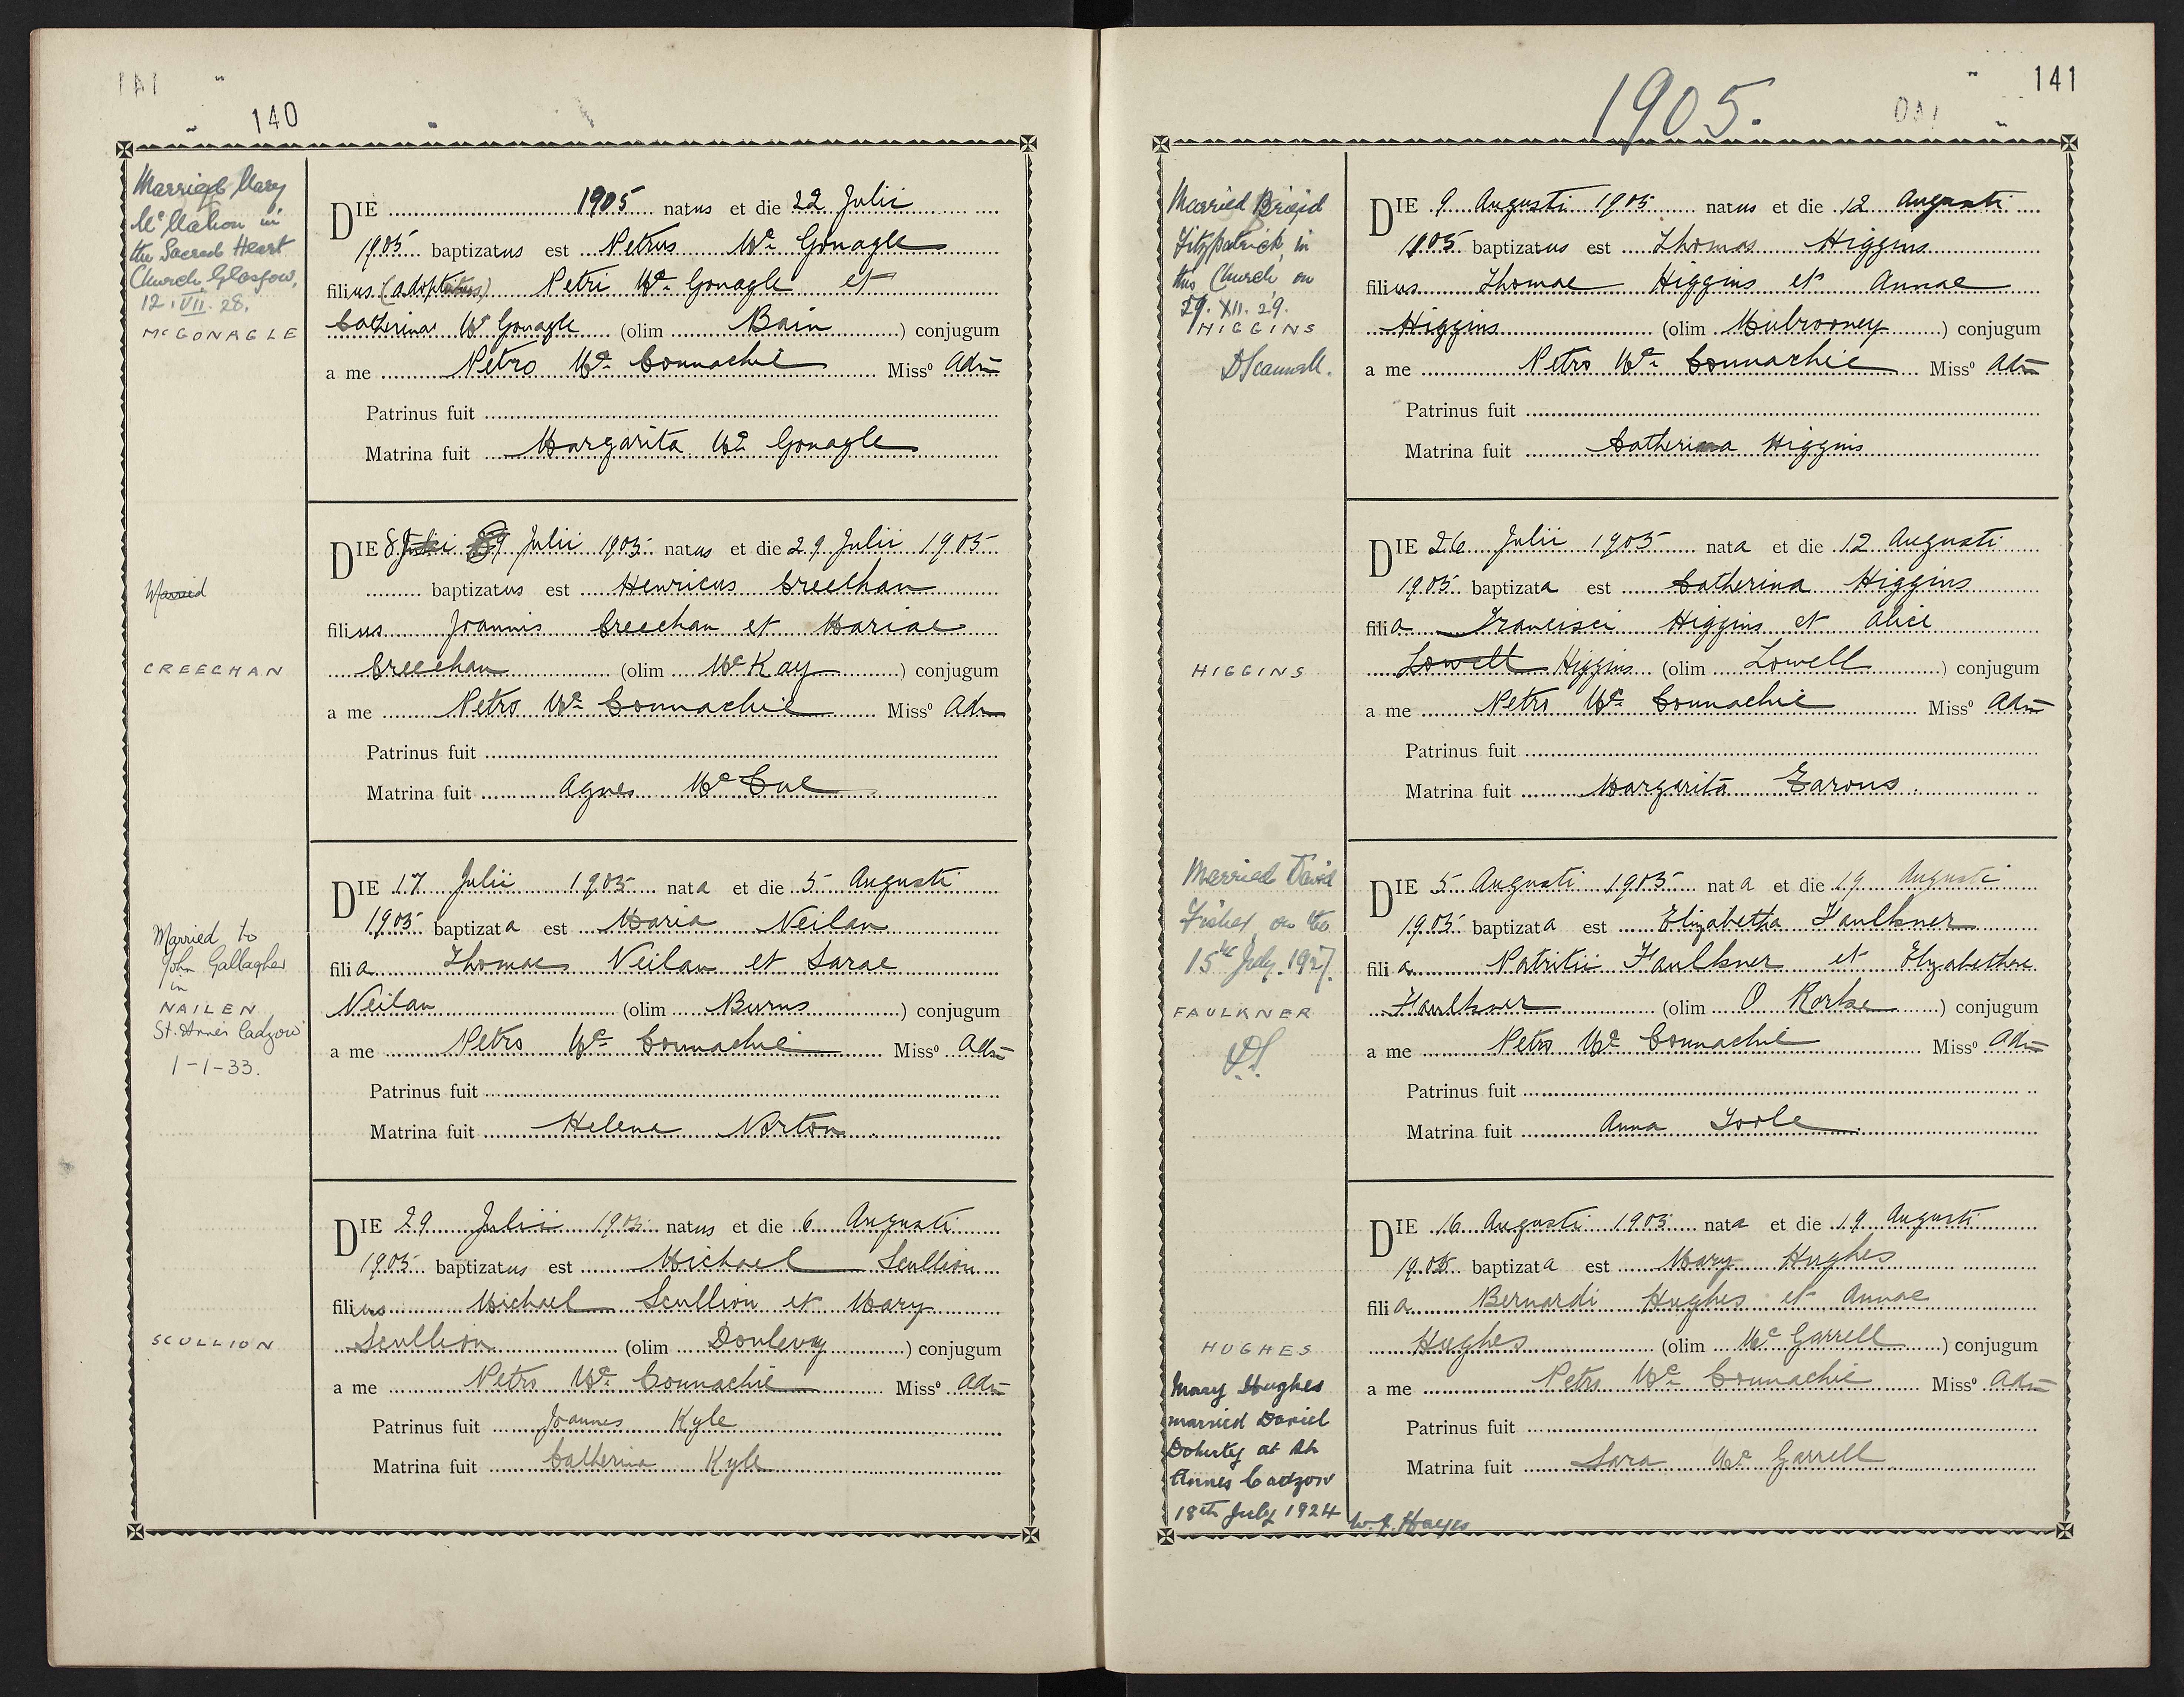 140
Married Mary
McMahon in
the Sacred Heart
Church, Glasgow,
12.VII.28.
McGONAGLE
DIE 1905 natus et die 22 Julii
1905 baptizatus est Petrus Mc Gonagle
filius (adoptatus) Petri Mc Gonagle et
Catherinae Mc Gonagle (olim Bain) conjugum
a me Petro Mc Connachie Misso Adm
Patrinus fuit
Matrina fuit Margarita Mc Gonagle
Married
CREECHAN
DIE 8 Julii 1905 natus et die 29 Julii 1905
baptizatus est Henricus Creechan
filius Joannis Creechan et Mariae
Creechan (olim McKay) conjugum
a me Petro Mc Connachie Misso Adm
Patrinus fuit
Matrina fuit Agnes McCue
Married to
John Gallagher
in
NAILEN
St. Anne's Cadzow
1-1-33.
DIE 17 Julii 1905 nata et die 5 Augusti
1905 baptizata est Maria Neilan
filia Thomae Neilan et Sarae
Neilan (olim Burns) conjugum
a me Petro Mc Connachie Misso Adm
Patrinus fuit
Matrina fuit Helena Norton
SCULLION
DIE 29 Julii 1905 natus et die 6 Augusti
1905 baptizatus est Michael Scullion
filius Michael Scullion et Mary
Scullion (olim Donlevy) conjugum
a me Petro Mc Connachie Misso Adm
Patrinus fuit Joannes Kyle
Matrina fuit Catherina Kyle
141
1905.
Married Brigid
Fitzpatrick, in
this Church, on
29.XII.29.
HIGGINS
D Scannell.
DIE 9 Augusti 1905 natus et die 12 Augusti
1905 baptizatus est Thomas Higgins
filius Thomae Higgins et Annae
Higgins (olim Mulrooney) conjugum
a me Petro Mc Connachie Misso Adm
Patrinus fuit
Matrina fuit Catherina Higgins
HIGGINS
DIE 26 Julii 1905 nata et die 12 Augusti
1905 baptizata est Catherina Higgins
filia Francisci Higgins et Alice
Lowell Higgins (olim Lowell) conjugum
a me Petro Mc Connachie Misso Adm
Patrinus fuit
Matrina fuit Margarita
Married David
Fisher on the
15th July 1927.
FAULKNER
D.S.
DIE 5 Augusti 1905 nata et die 19 Augusti
1905 baptizata est Elizabetha Faulkner
filia Patritii Faulkner et Elyzabethae
Faulkner (olim O Rorke) conjugum
a me Petro Mc Connachie Misso Adm
Patrinus fuit
Matrina fuit Anna Toole
HUGHES
Mary Hughes
married Daniel
Doherty at St
Annes Cadzow
18th July 1924
W. J. Hayes
DIE 16 Augusti 1905 nata et die 19 Augusti
1905 baptizata est Mary Hughes
filia Bernardi Hughes et Annae
Hughes (olim Mc Garrell) conjugum
a me Petro Mc Connachie Misso Adm
Patrinus fuit
Matrina fuit Sara Mc Garrell